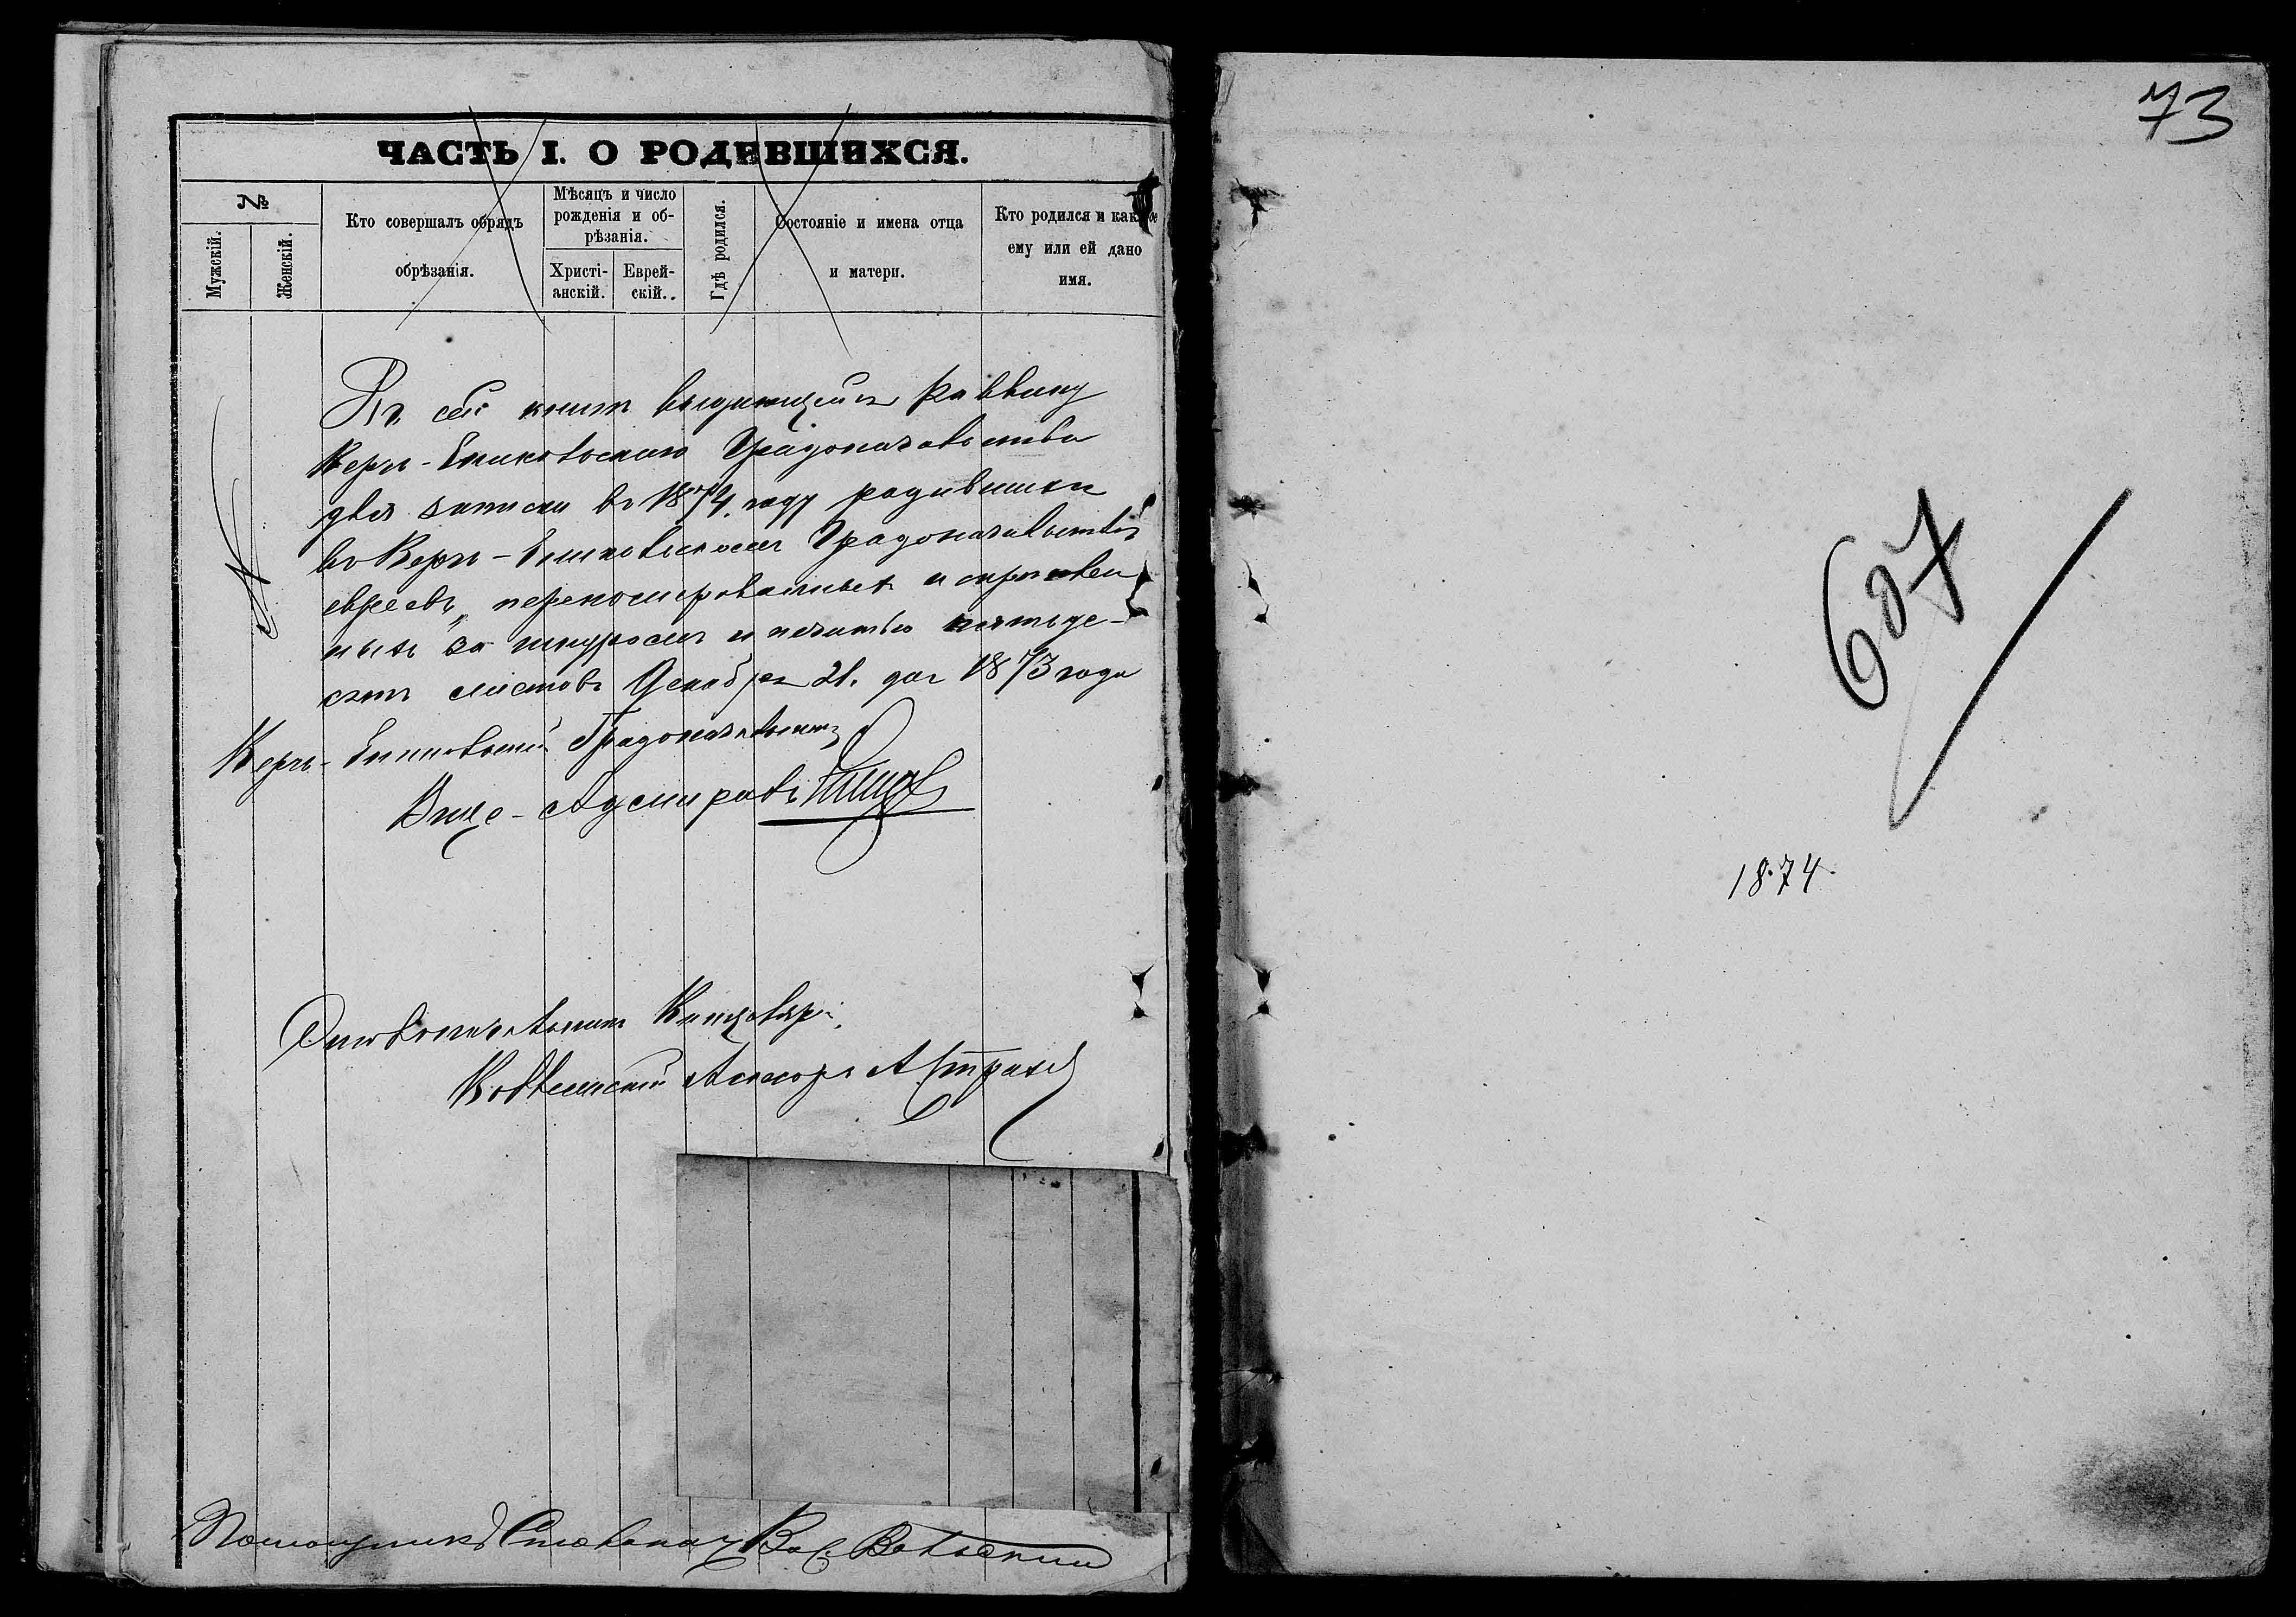 ЧАСТЬ I. О РОДИВШИХСЯ.
№
Мужскій.
Женскій.
Кто совершалъ обрядъ
обрѣзанія.
Мѣсяцъ и число
рожденія и об-
рѣзанія.
Христі-
анскій.
Еврей-
скій.
Гдѣ родился.
Состояніе и имена отца
и матери.
Кто родился и какое
ему или ей дано
имя.
Въ сей книгѣ выдающейся Раввину
Керчь-Еникольскаго Градоначальства
для записки въ 1874 году родившихся
въ Керчь-Еникольскомъ Градоначальствѣ
евреевъ, переномерованныхъ и скреплен
ныхъ за шнуромъ и печатью пятьде-
сятъ листовъ Декабря 21. дня 1873 года
Керчь-Еникольскій Градоначальникъ
Вице-Адмиралъ
Дѣлопроизводитель Канцеляріи
Коллежскій Ассесоръ А Страх
Помощникъ Столонач. Вас.
73
607
1874.